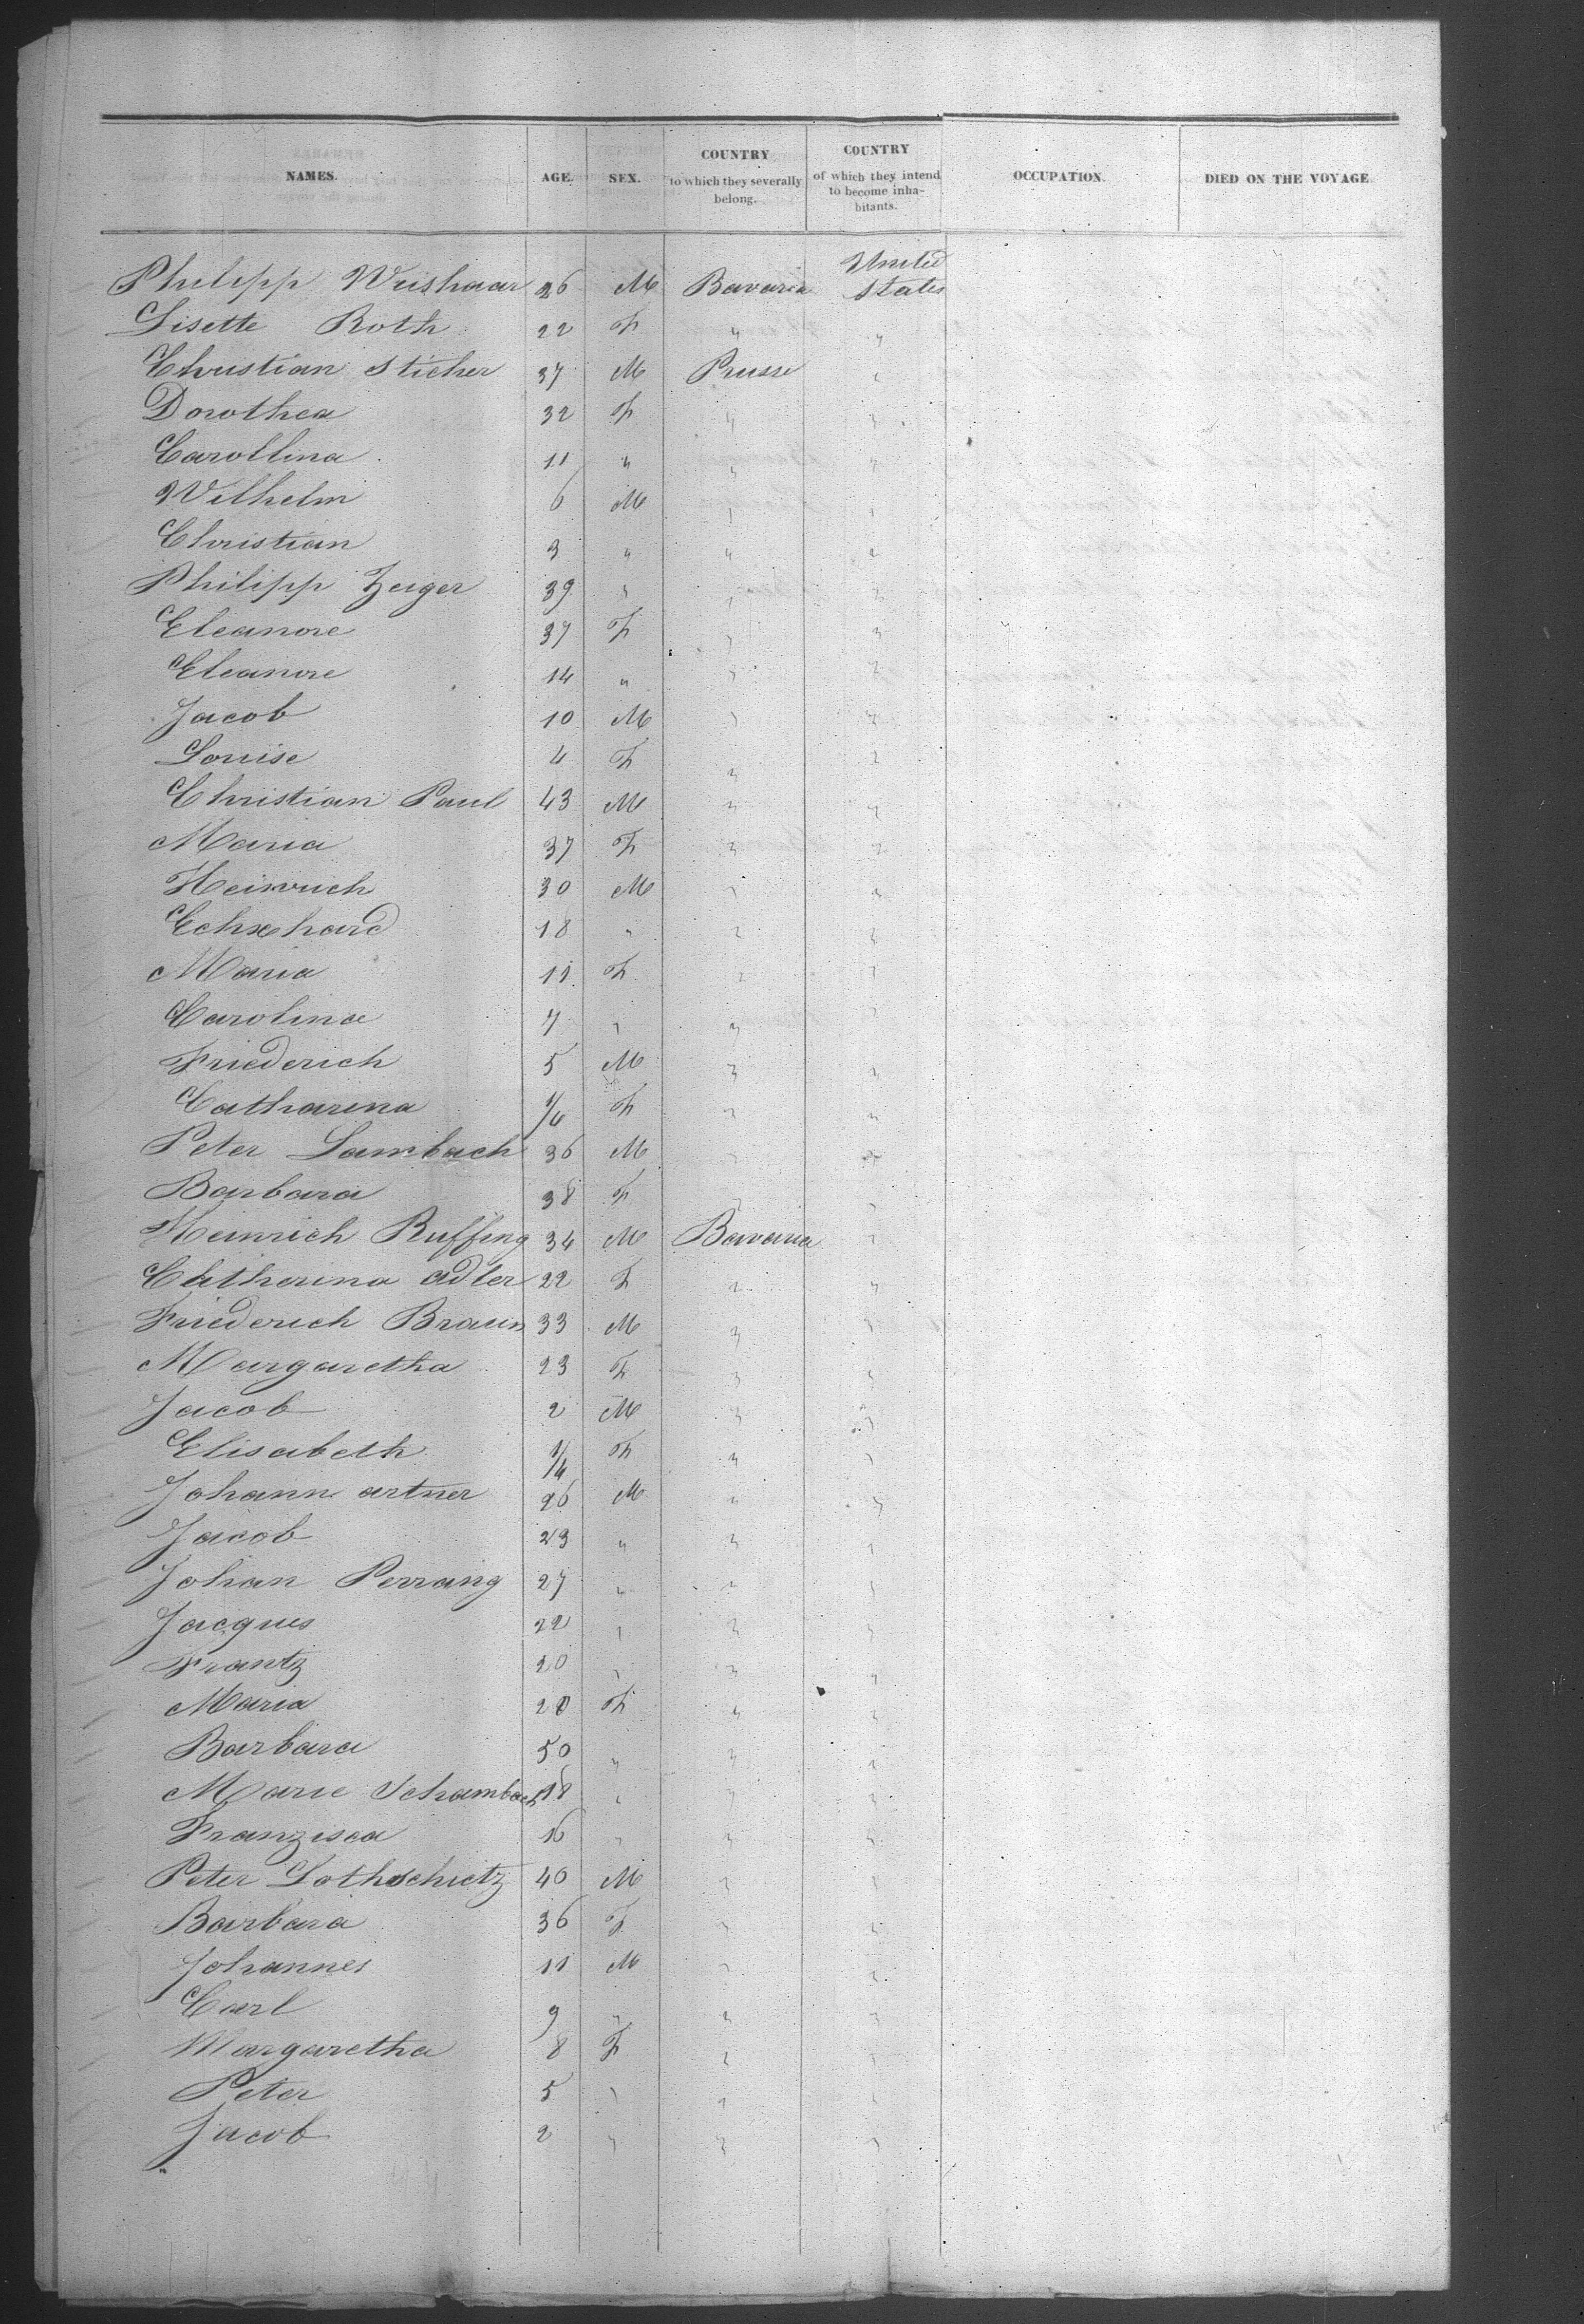 NAMES. AGE. SEX. COUNTRY to which they severally belong. COUNTRY of which they intend to become inhabitants. OCCUPATION. DIED ON THE VOYAGE
Philipp Weishaar 26 M Bavaria United States
Lisette Roth 22 F " "
Christian Sticher 37 M Prusse "
Dorothea 32 F " "
Carollina 11 " " "
Wilhelm 6 M " "
Christian 3 " " "
Philipp Zeiger 39 " " "
Eleanore 37 F " "
Eleanore 14 " " "
Jacob 10 M " "
Louise 4 F " "
Christian Paul 43 M " "
Maria 37 F " "
Heinrich 30 M " "
18 " " "
Maria 11 F " "
Carolina 7 " " "
Friederich 5 M " "
Catharina F " "
Peter Lambach 36 M " "
Barbara 38 F " "
Heinrich Ruffing 34 M Bavaria "
Catharina Adler 22 F " "
Friederich Braun 33 M " "
Margaretha 23 F " "
Jacob 2 M " "
Elisabeth 1/4 F " "
Johann artner 26 M " "
Jacob 23 " " "
Johan Perrang 27 " " "
Jacques 22 " " "
Frantz 20 " " "
Maria 20 F " "
Barbara 50 " " "
Marie Schambach 18 " " "
Franzisca 16 " " "
Peter Lothschietz 40 M " "
Barbara 36 F " "
Johannes 11 M " "
Carl 9 " " "
Margaretha 8 F " "
Peter 5 " " "
Jacob 2 " " "